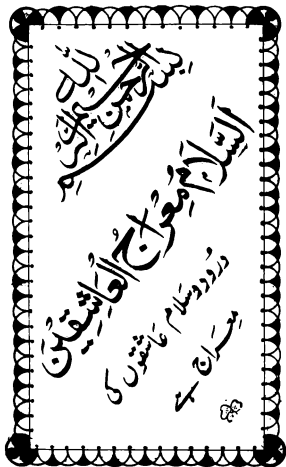 بسم الله الرحمن الرحيم
اَلسَّلَامُ مِعْرَاجُ الْعَاشِقِيْنَ
درود و سلام عاشقوں کی
معراج ہے